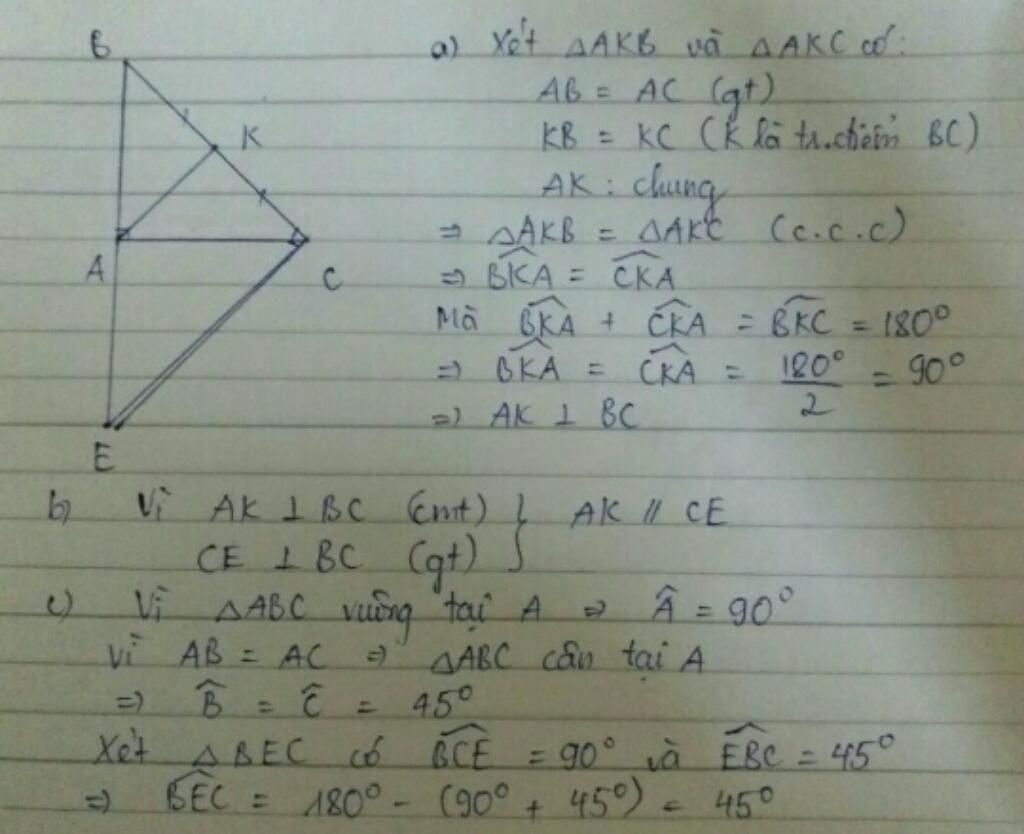 B
K
A
C
E
a) Xét △AKB và △AKC có:
AB = AC (gt)
KB = KC (K là tr.điểm BC)
AK : chung
⇒ △AKB = △AKC (c.c.c)
⇒ \widehat{BKA} = \widehat{CKA}
Mà \widehat{BKA} + \widehat{CKA} = \widehat{BKC} = 180°
⇒ \widehat{BKA} = \widehat{CKA} = \frac{180°}{2} = 90°
⇒ AK ⊥ BC
b) Vì AK ⊥ BC (cmt) } AK // CE
CE ⊥ BC (gt)
c) Vì △ABC vuông tại A ⇒ Â = 90°
Vì AB = AC ⇒ △ABC cân tại A
⇒ \widehat{B} = \widehat{C} = 45°
Xét △BEC có \widehat{BCE} = 90° và \widehat{EBC} = 45°
⇒ \widehat{BEC} = 180° - (90° + 45°) = 45°